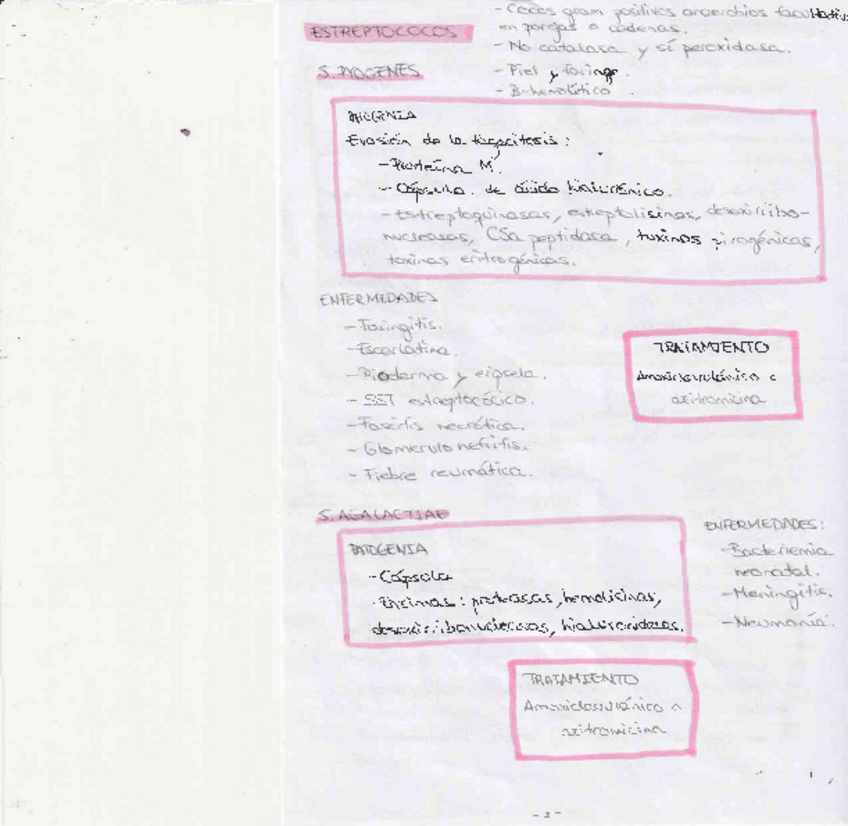 ESTREPTOCOCOS
- Cocos gram positivos anaerobios facultativos
en parejas o cadenas.
- No catalasa y sí peroxidasa.
- Piel y faringe.
- B-hemolítico.
S. PYOGENES
PATOGENIA
Evasión de la fagocitosis:
- Proteína M.
- Cápsula de ácido hialurónico.
- Estreptoquinasas, estreptolisinas, desoxirribo-
nucleasas, C5a peptidasa, toxinas pirogénicas,
toxinas eritrogénicas.
ENFERMEDADES
- Faringitis.
- Escarlatina.
- Pioderma y eripela.
- SST estreptocócico.
- Fascitis necrótica.
- Glomerulonefritis.
- Fiebre reumática.
TRATAMIENTO
Amoxiclavulánico o
azitromicina
S. AGALACTIAE
PATOGENIA
- Cápsula
- Enzimas: proteasas, hemolisinas,
desoxirribonucleasas, hialuronidasas.
ENFERMEDADES:
- Bacteriemia
neonatal.
- Meningitis.
- Neumonía.
TRATAMIENTO
Amoxiclavulánico o
azitromicina